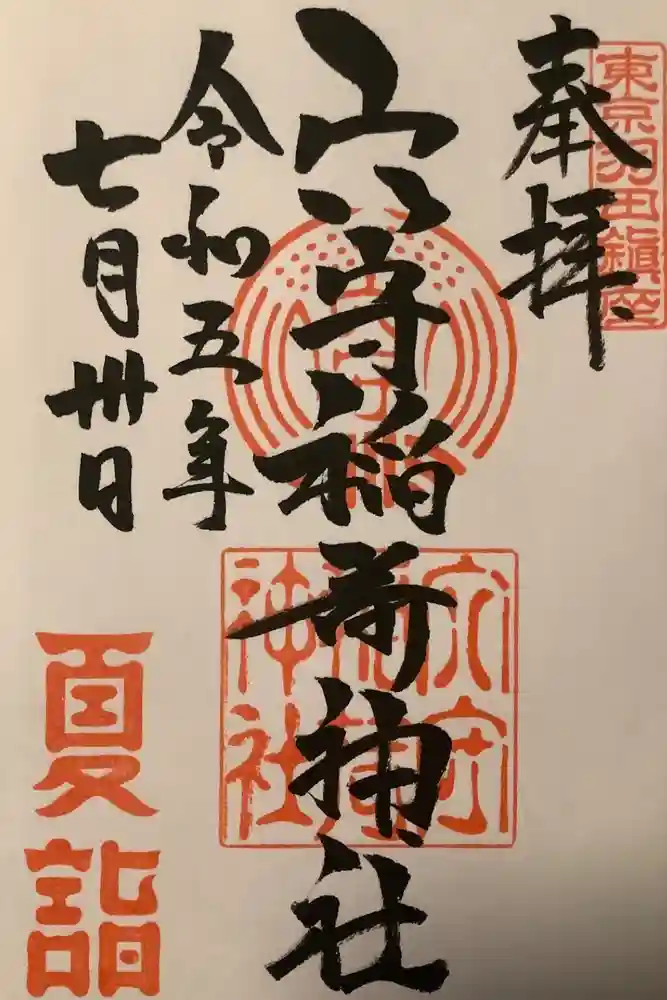 奉拝
東京羽田鎮座
穴守稲荷神社
穴守稲荷神社
令和五年
七月卅日
夏詣